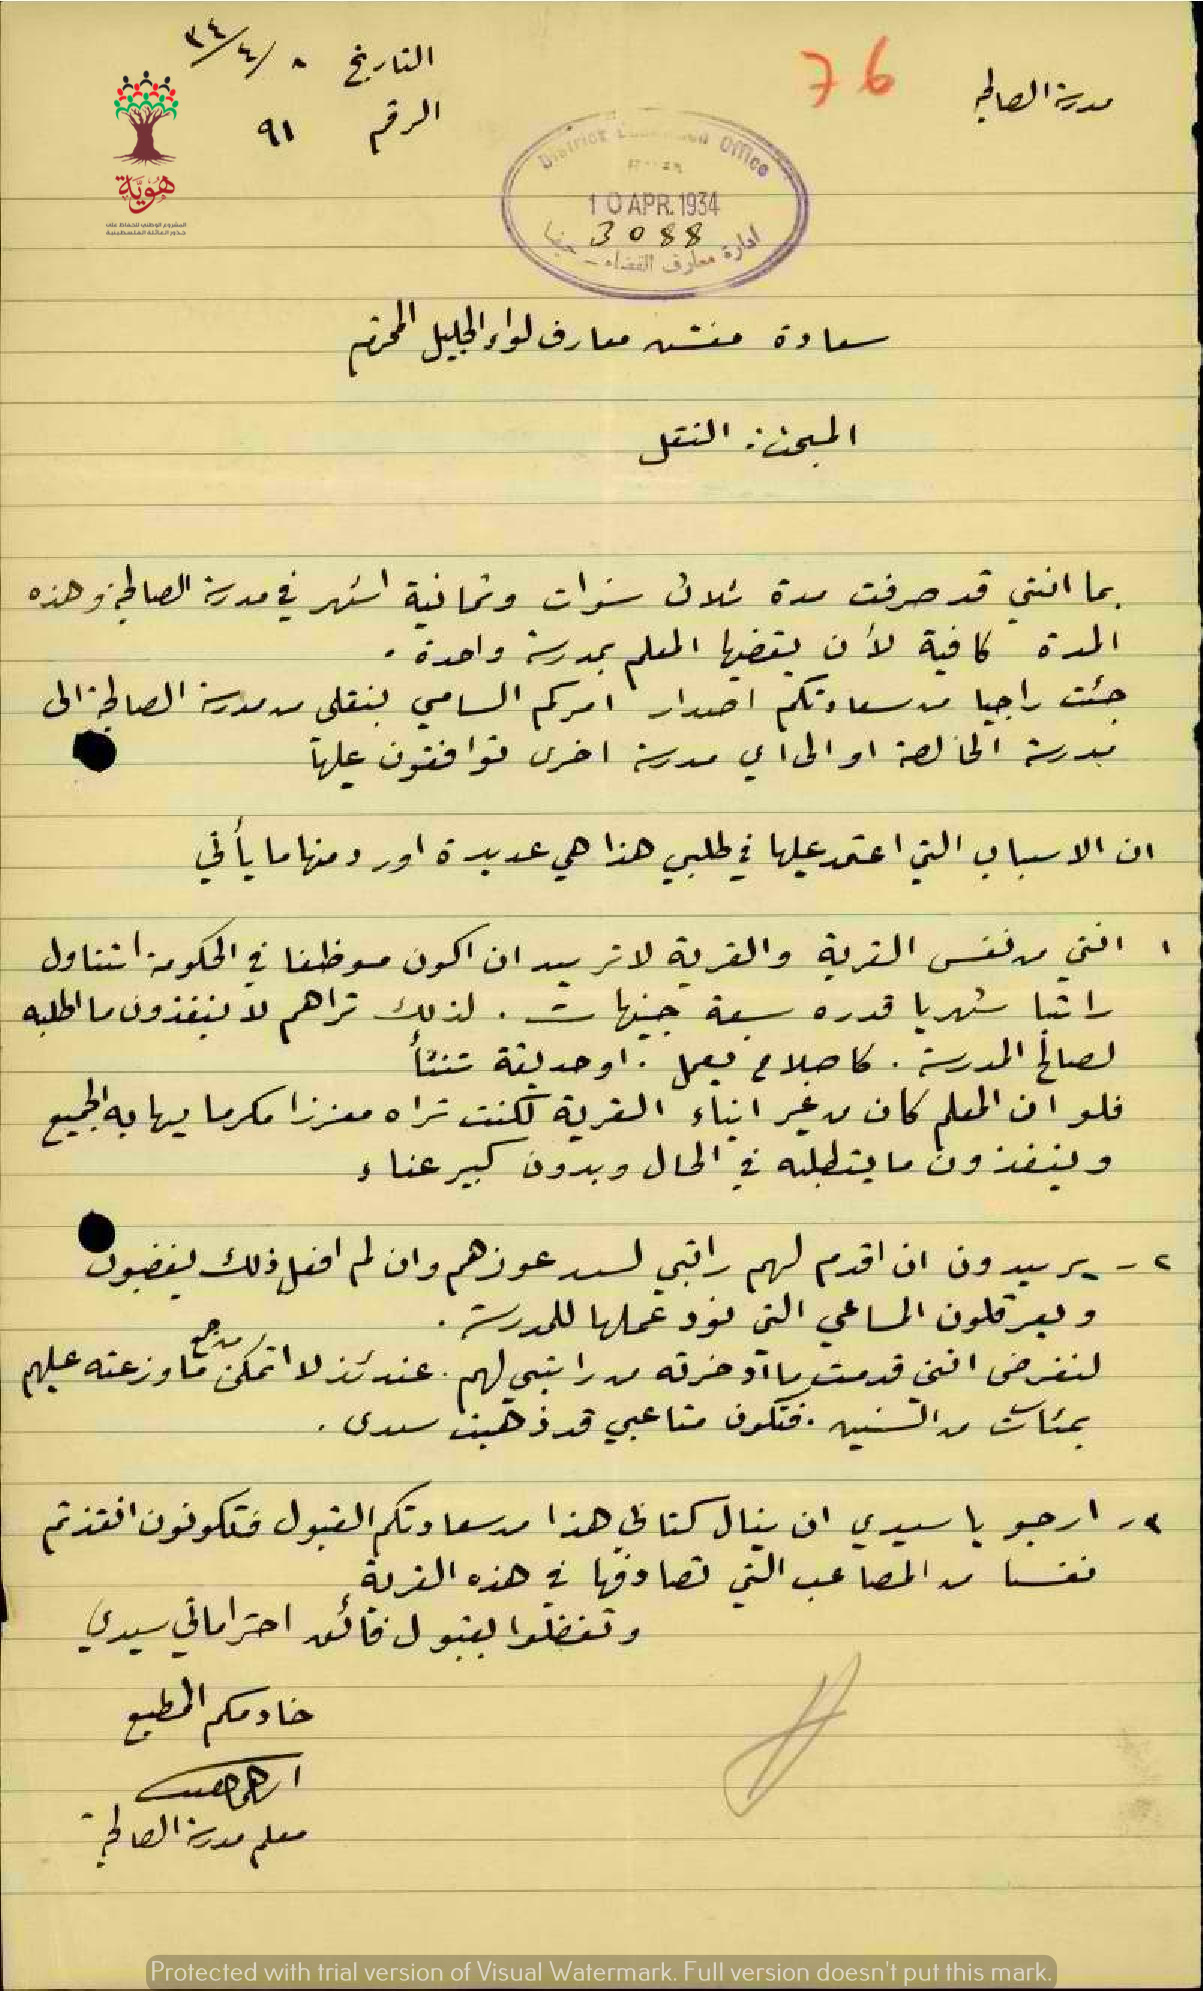 مدرسة الصالحية
76
التاريخ ٨/٤/٣٤
الرقم ٩١
هُوِيَّة
المشروع الوطني للحفاظ على
جذور العائلة الفلسطينية
District Office
10 APR. 1934
3088
ادارة معارف القضاء - حيفا
سعادة مفتش معارف لواء الجليل المحترم
المبحث: النقل
بما انني قد صرفت مدة ثلاث سنوات وثمانية اشهر في مدرسة الصالحية وهذه
المدة كافية لأن يقضيها المعلم بمدرسة واحدة .
جئت راجيا من سعادتكم اصدار امركم السامي بنقلي من مدرسة الصالحية الى
مدرسة الخالصة او الى اي مدرسة اخرى توافقون عليها
ان الاسباب التي اعتمد عليها في طلبي هذا هي عديدة اورد منها ما يأتي
١ انني من نفس القرية والقرية لا تريد ان اكون موظفا في الحكومة اتناول
راتبا شهريا قدره سبعة جنيهات . لذلك تراهم لا ينفذون ما اطلبه
لصالح المدرسة . كاصلاح يعمل . او حديقة تنشأ
فلو ان المعلم كان من غير ابناء القرية لكنت تراه معززا مكرما يهابه الجميع
وينفذون ما يتطلبه في الحال وبدون كبير عناء
٢ - يريدون ان اقدم لهم راتبي لسد عوزهم وان لم افعل ذلك يغضبون
ويعرقلون المساعي التي نود عملها للمدرسة .
لنفرض انني قدمت ما أدخرته من راتبي لهم . عندئذ لا اتمكن من جمع ما وزعته عليهم
بمئات من السنين . فتكون متاعبي قد ذهبت سدى .
٣ - ارجو يا سيدي ان ينال كتابي هذا من سعادتكم القبول فتكونون انقذتم
نفسا من المصاعب التي تصادفها في هذه القرية
وتفضلوا بقبول فائق احتراماتي سيدي
خادمكم المطيع
معلم مدرسة الصالحية
Protected with trial version of Visual Watermark. Full version doesn't put this mark.